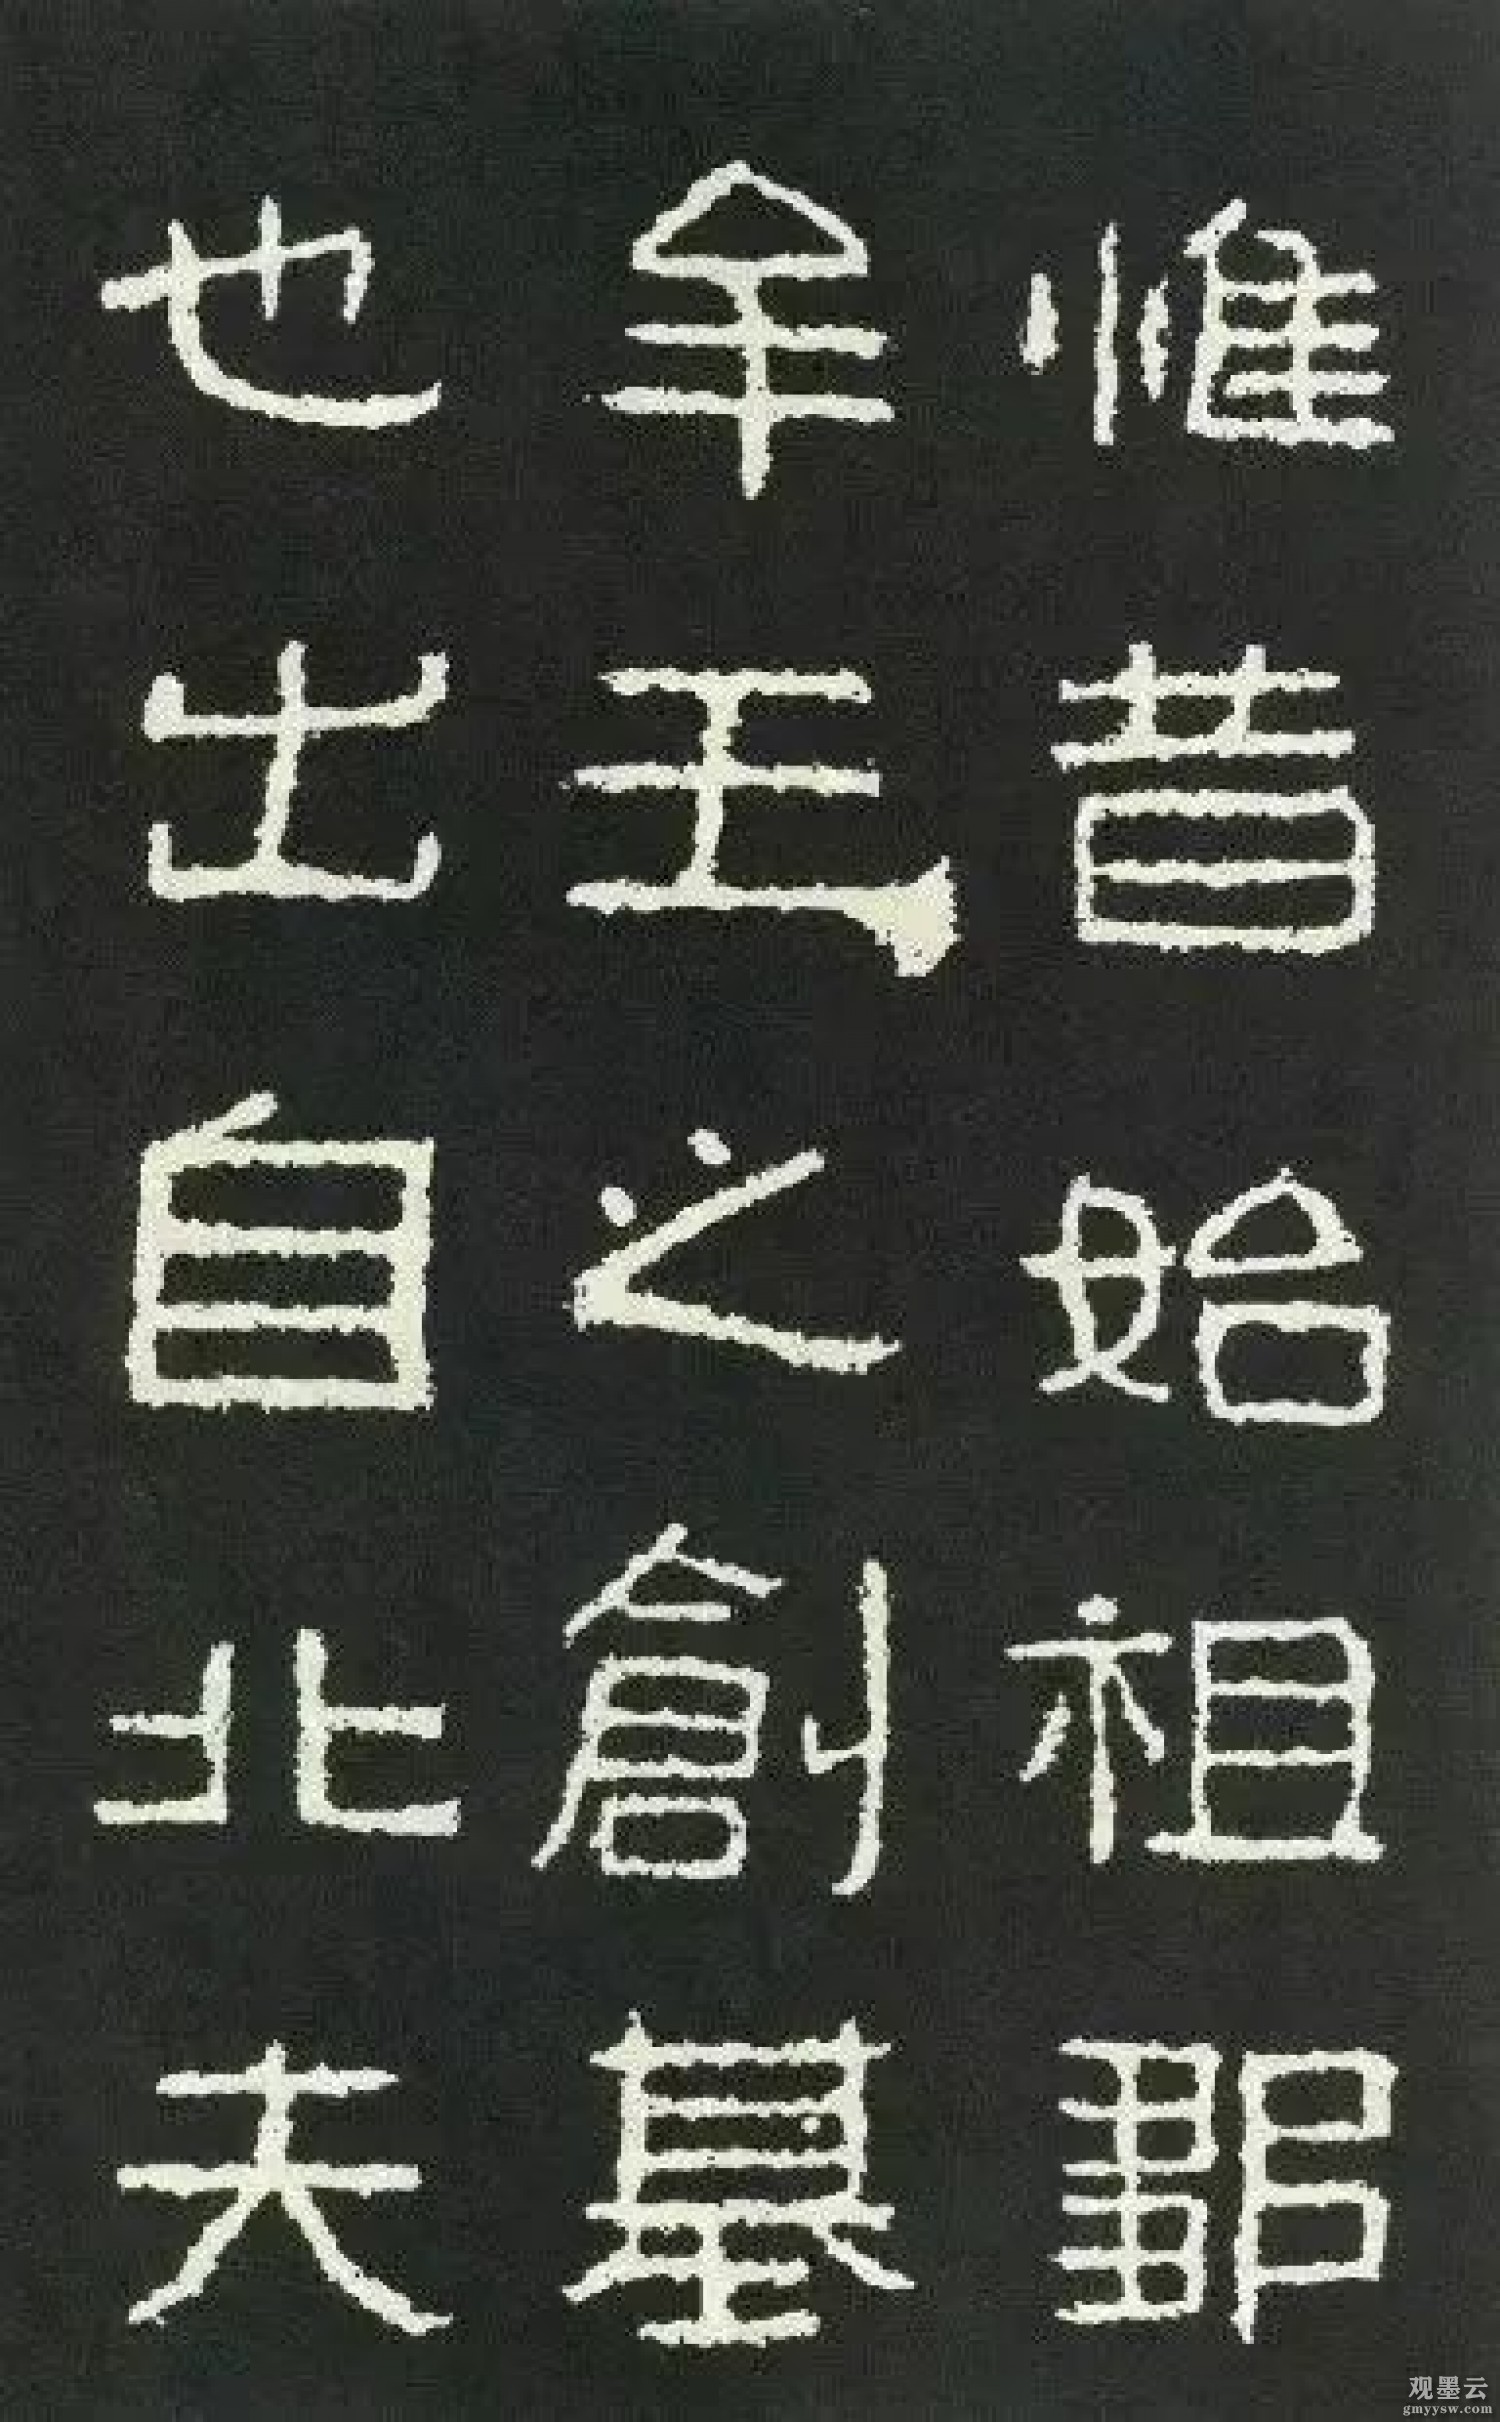 惟昔始祖鄒
牟王之創基
也出自北夫
观墨云
gmyysw.com